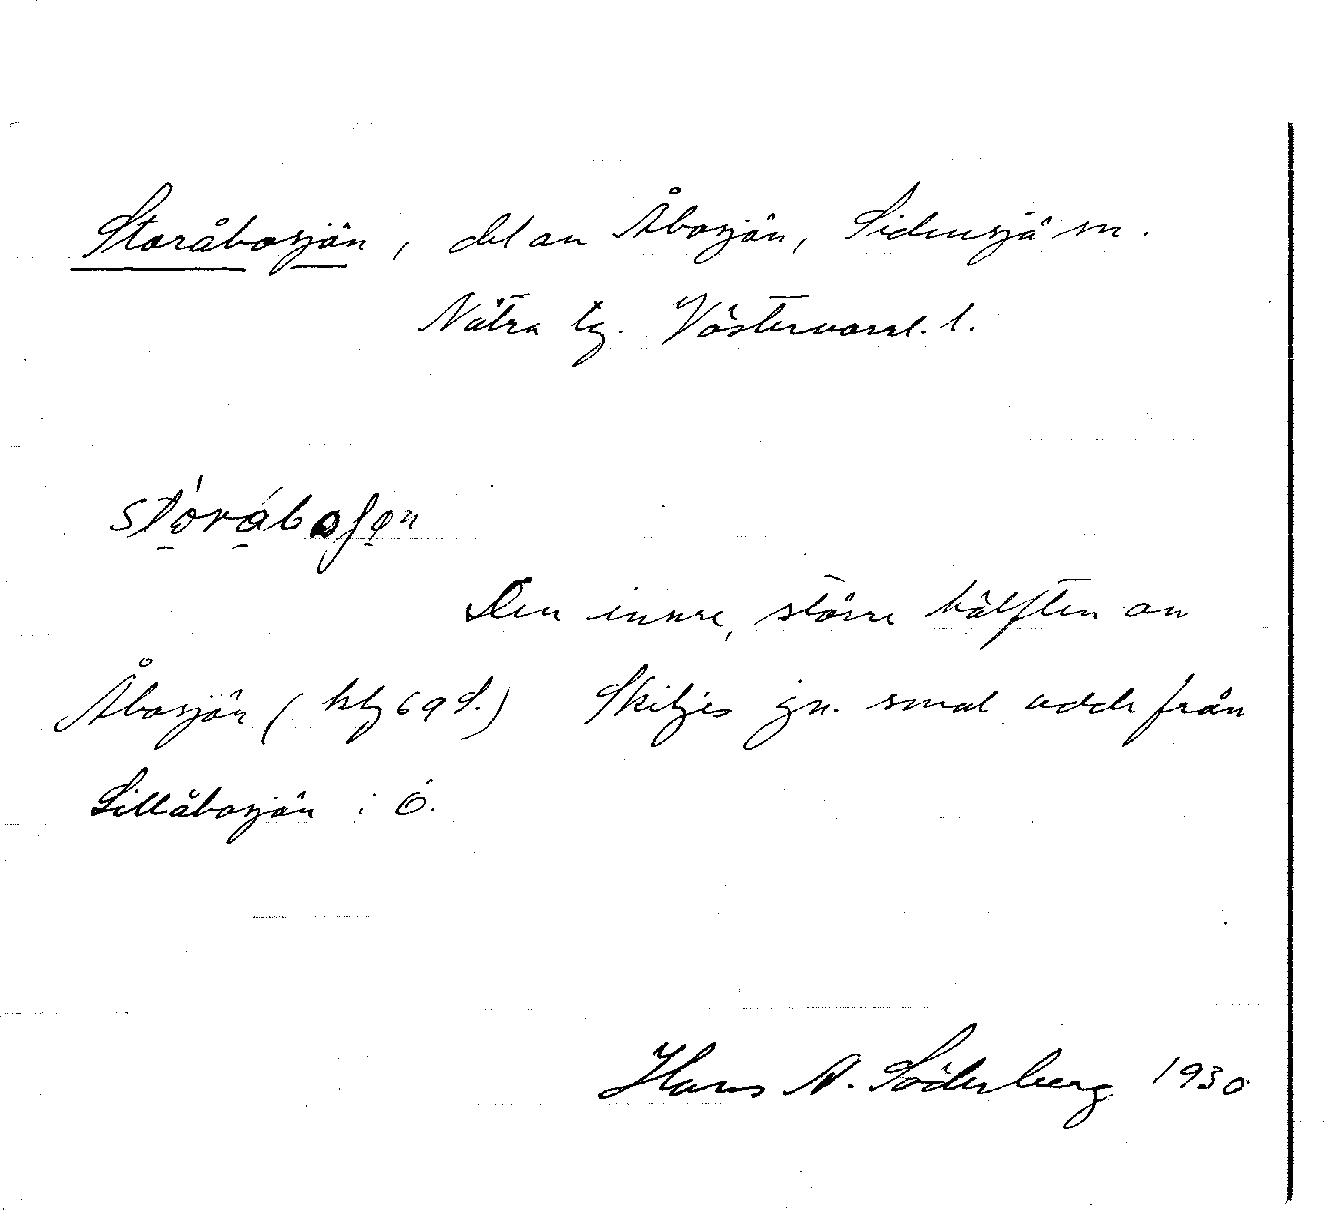 Storåbosjön, del av Åbosjön, Sidensjö sn.
Nätra tg. Västernorrl. l.
stòrábosen
Den inre, större hälften av
Åbosjön (kbl 69 S.) Skiljes gn. smal udde från
Lillåbosjön i Ö.
Hans A. Söderberg 1930